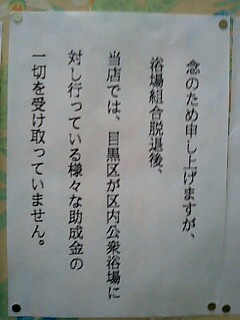 念のため申し上げますが、
浴場組合脱退後、
当店では、目黒区が区内公衆浴場に
対し行っている様々な助成金の
一切を受け取っていません。